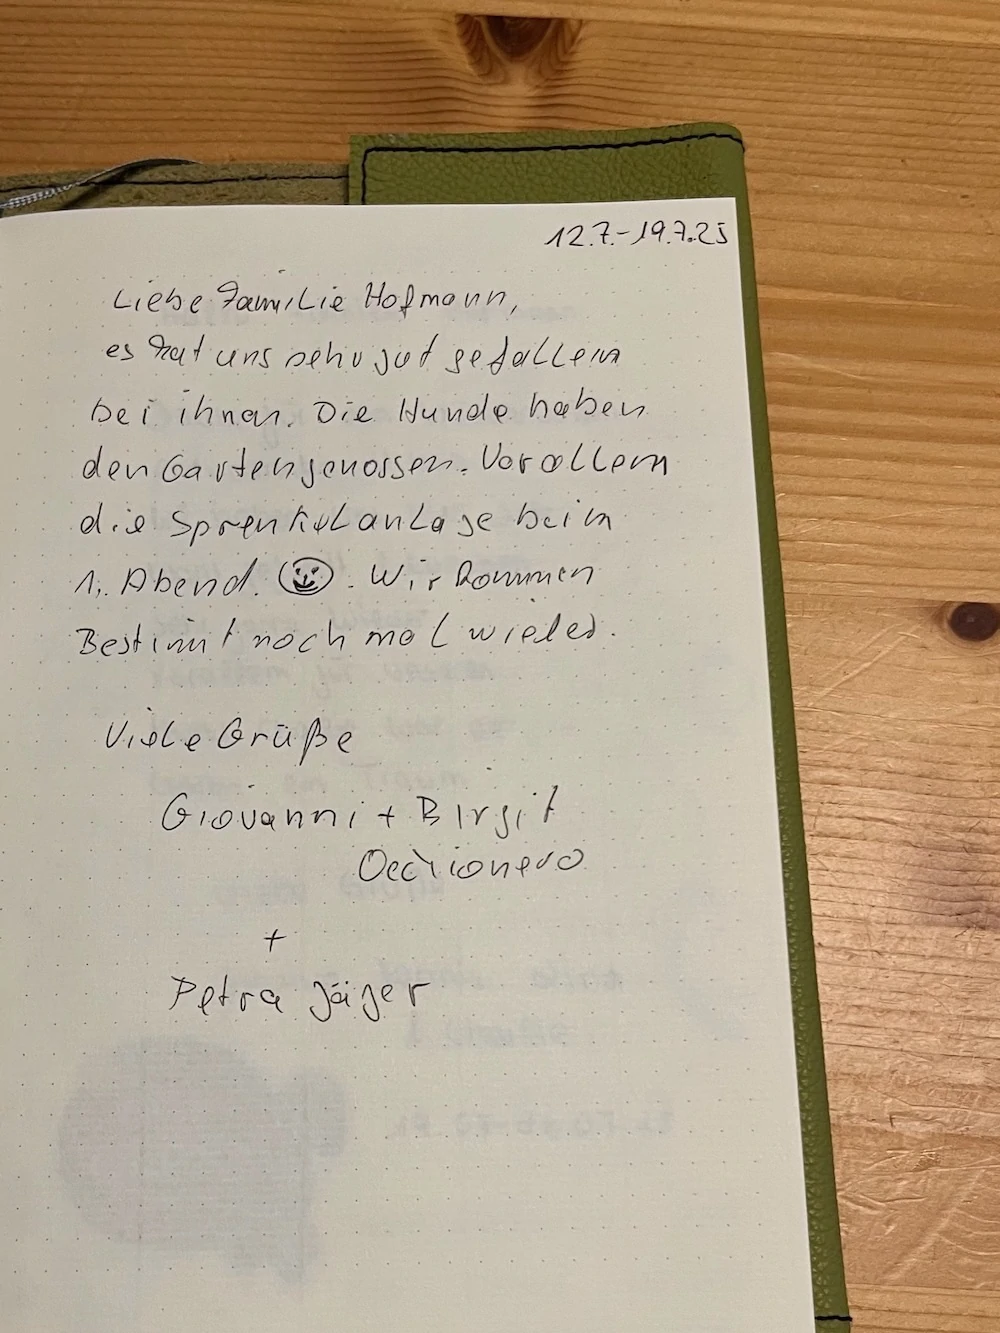 12.7.-19.7.25
Liebe Familie Hofmann,
es hat uns sehr gut gefallen
bei ihnen. Die Hunde haben
den Garten genossen. Vor allem
die Sprenkelanlage beim
1. Abend. ☺. Wir kommen
Bestimmt noch mal wieder.
Viele Grüße
Giovanni + Birgit
Occhionero
+
Petra Jäger